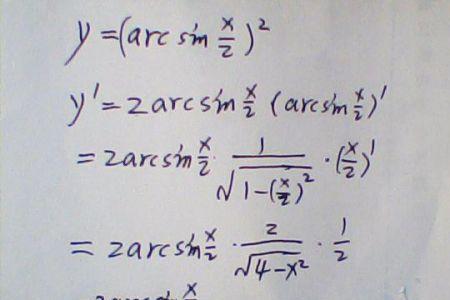 y = (arc sin x/2)²
y' = 2arcsin x/2 (arcsin x/2)'
= 2arcsin x/2 · 1/√(1-(x/2)²) · (x/2)'
= 2arcsin x/2 · 2/√(4-x²) · 1/2